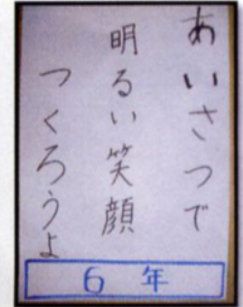 あいさつで
明るい笑顔
つくろうよ
6年